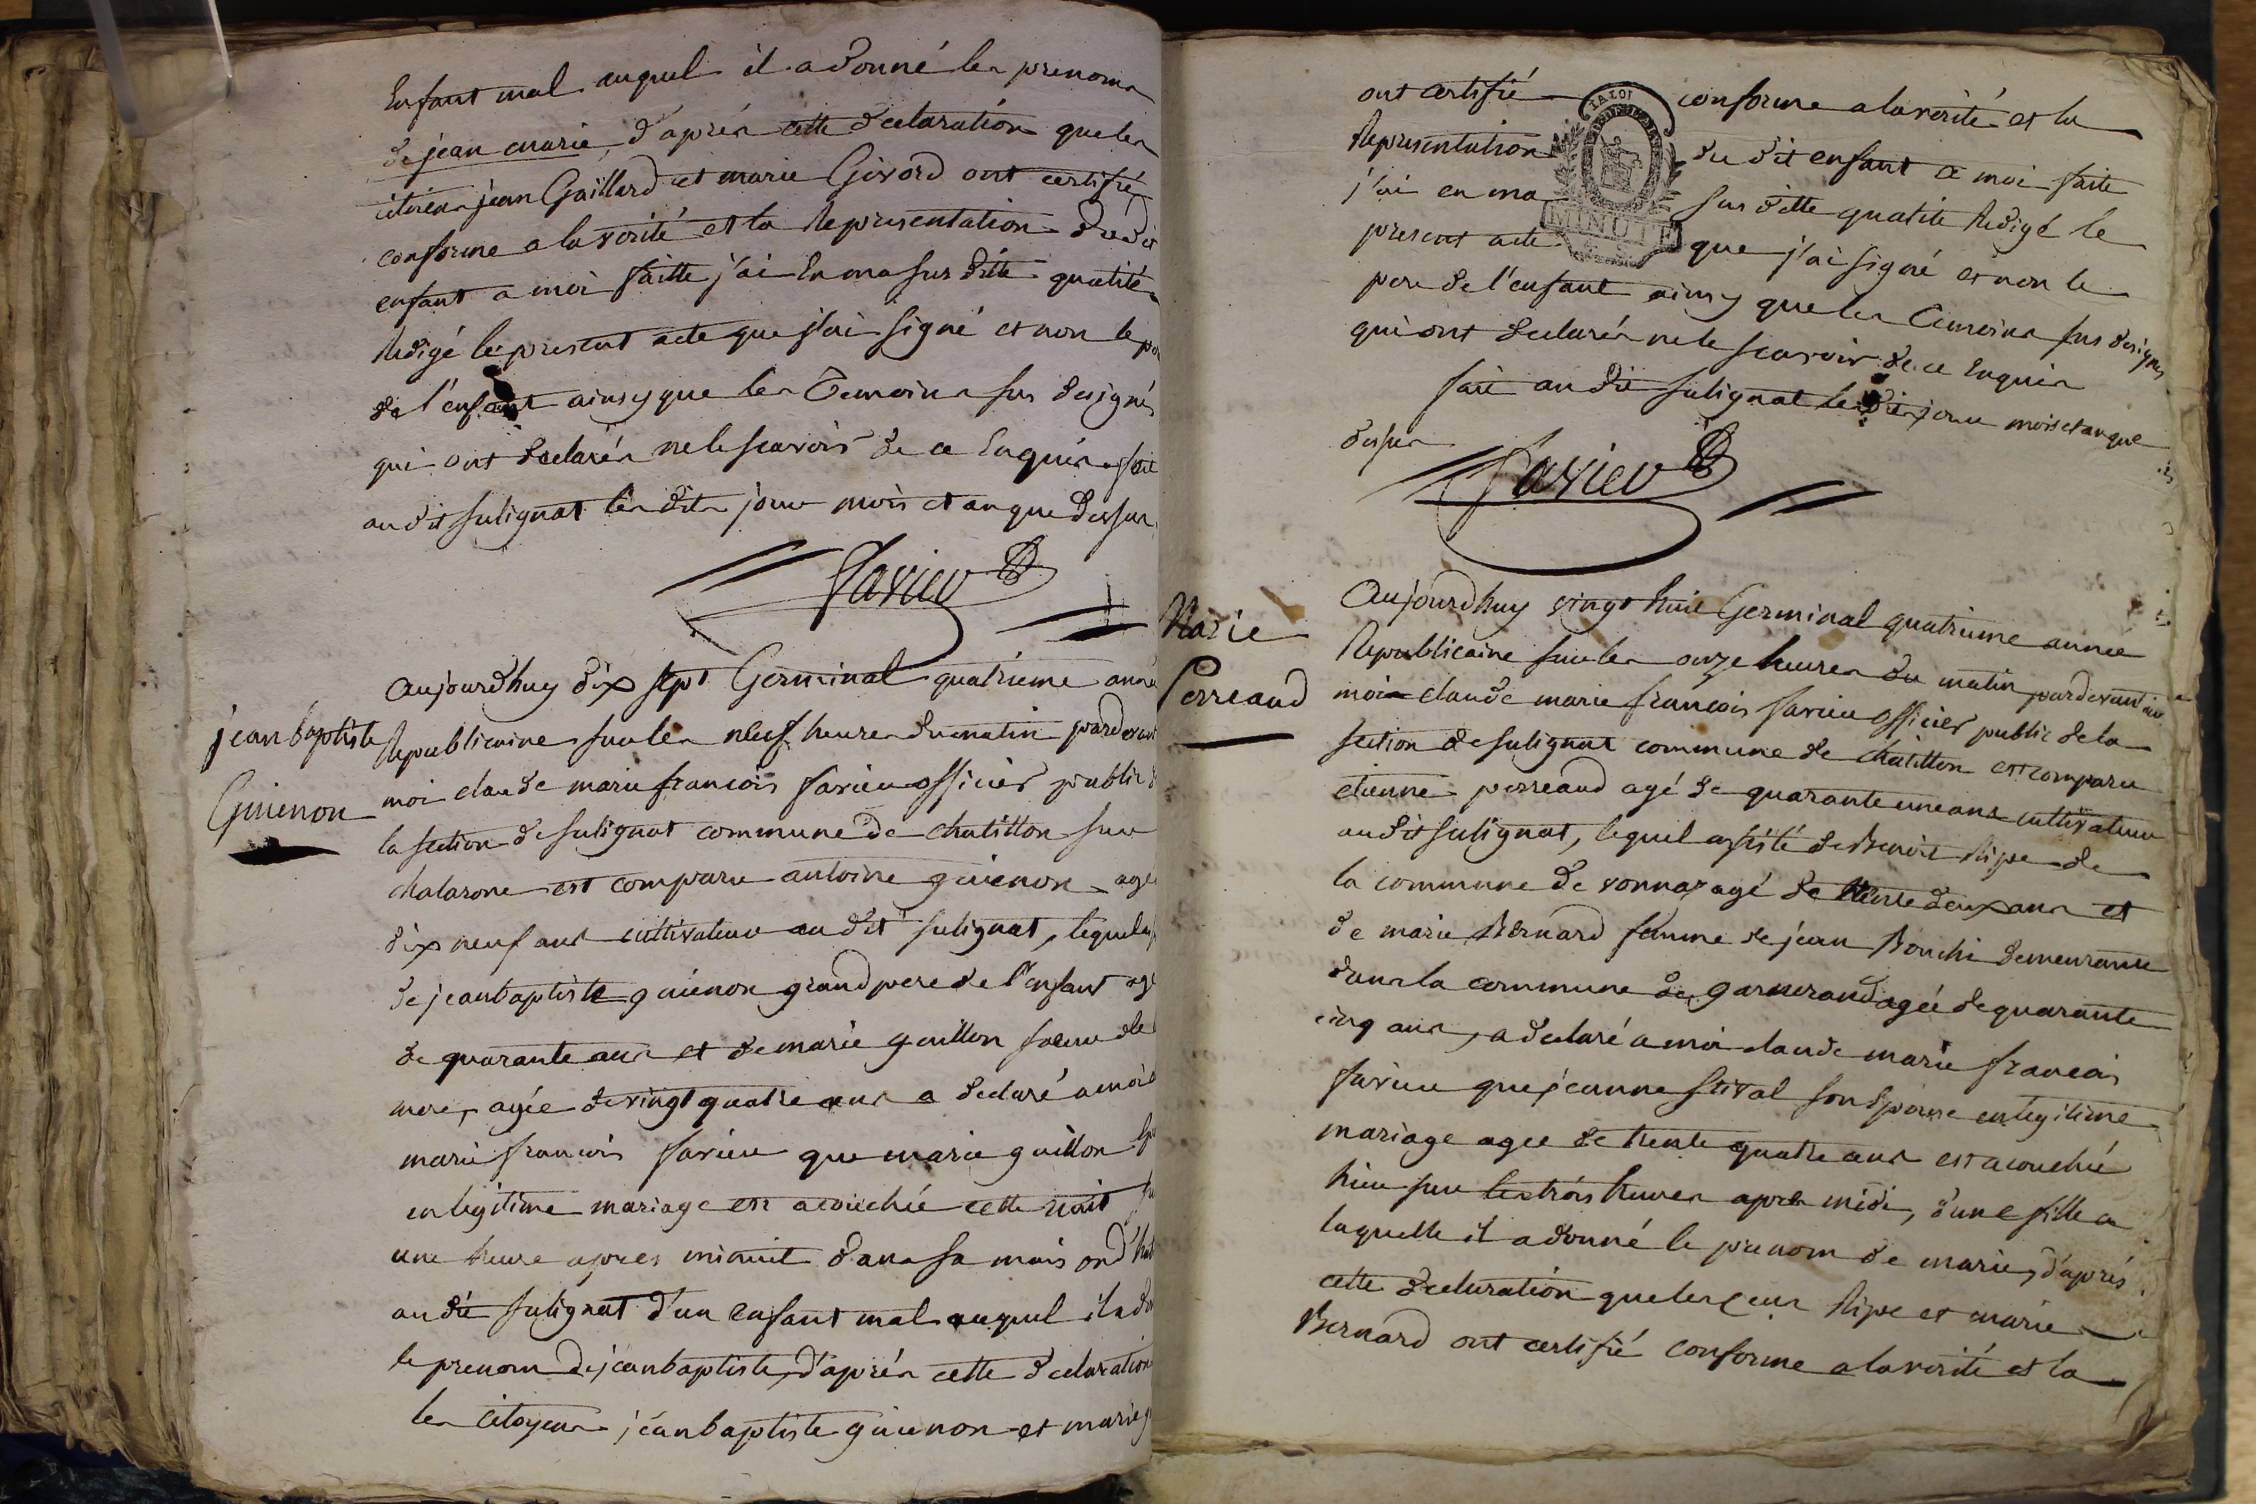 Enfant mal auquel il a donné les prenoms
de jean marie, d'aprés cette declaration que les
citoiens jean Gaillard et marie Givord ont certifié
conforme a la verité et la Representation dudit
enfant a moi faitte j'ai En ma sus ditte qualité
Redigé le present acte que j'ai signé et non le per
de l'enfant ainsy que les Temoins sus designés
qui ont declarés ne le scavoir de ce Enquis fait
au dit sulignat les dits jour mois et an que dessus
Favier
jean baptiste
Guienon
aujourdhuy dix sept Germinal quatrieme anné
Republicaine sur les neuf heures du matin pardevant
moi claude marie francois favier officier public d
la section de sulignat commune de chatillon sur
chalarone est comparu antoine guienon agé
dix neuf ans cultivateur au dit sulignat, lequel as
de jean baptiste guienon grand pere de l'enfant agé
de quarante ans et de marie guillon soeur de
mere, agée de vingt quatre ans a declaré a moi
marie francois favier que marie guillon
en legitime mariage est acouchée cette nuit
une heure apres minuit dans sa maison d'hab
au dit sulignat d'un enfant mal auquel il a do
le prenom de jean baptiste, d'aprés cette declaration
les citoyens jean baptiste guienon et marie g
ont certifié conforme a la verité et la
Representation du dit enfant a moi faite
IALOI
MINUTE
j'ai en ma sus ditte qualite Redigé le
present acte que j'ai signé et non le
pere de l'enfant ainsy que les Temoins sus designés
qui ont declarés ne le scavoir de ce Enquis
fait au dit sulignat les dits jour mois et an que
dessus
Favier
Marie
Perreaud
Aujourdhuy vingt huit Germinal quatrieme année
Republicaine sur les onze heures du matin pardevant
moi claude marie francois favier officier public de la
section de sulignat commune de chatillon est comparu
etienne perreaud agé de quarante une ans cultivateur
au dit sulignat, lequel assisté de Benoit Ripe de
la commune de vonnas agé de trente deux ans et
de marie Bernard femme de jean Bouchi demeurante
dans la commune de garnerand agée de quarante
cinq ans, a declaré a moi claude marie francois
favier que jeanne stival son Epouse en legitime
mariage agee de trente quatre ans est acouchée
hier sur les trois heures apres midi, d'une fille a
laquelle il a donné le prenom de marie, d'aprés
cette declaration que les Ripe et marie
Bernard ont certifié conforme a la verité et la